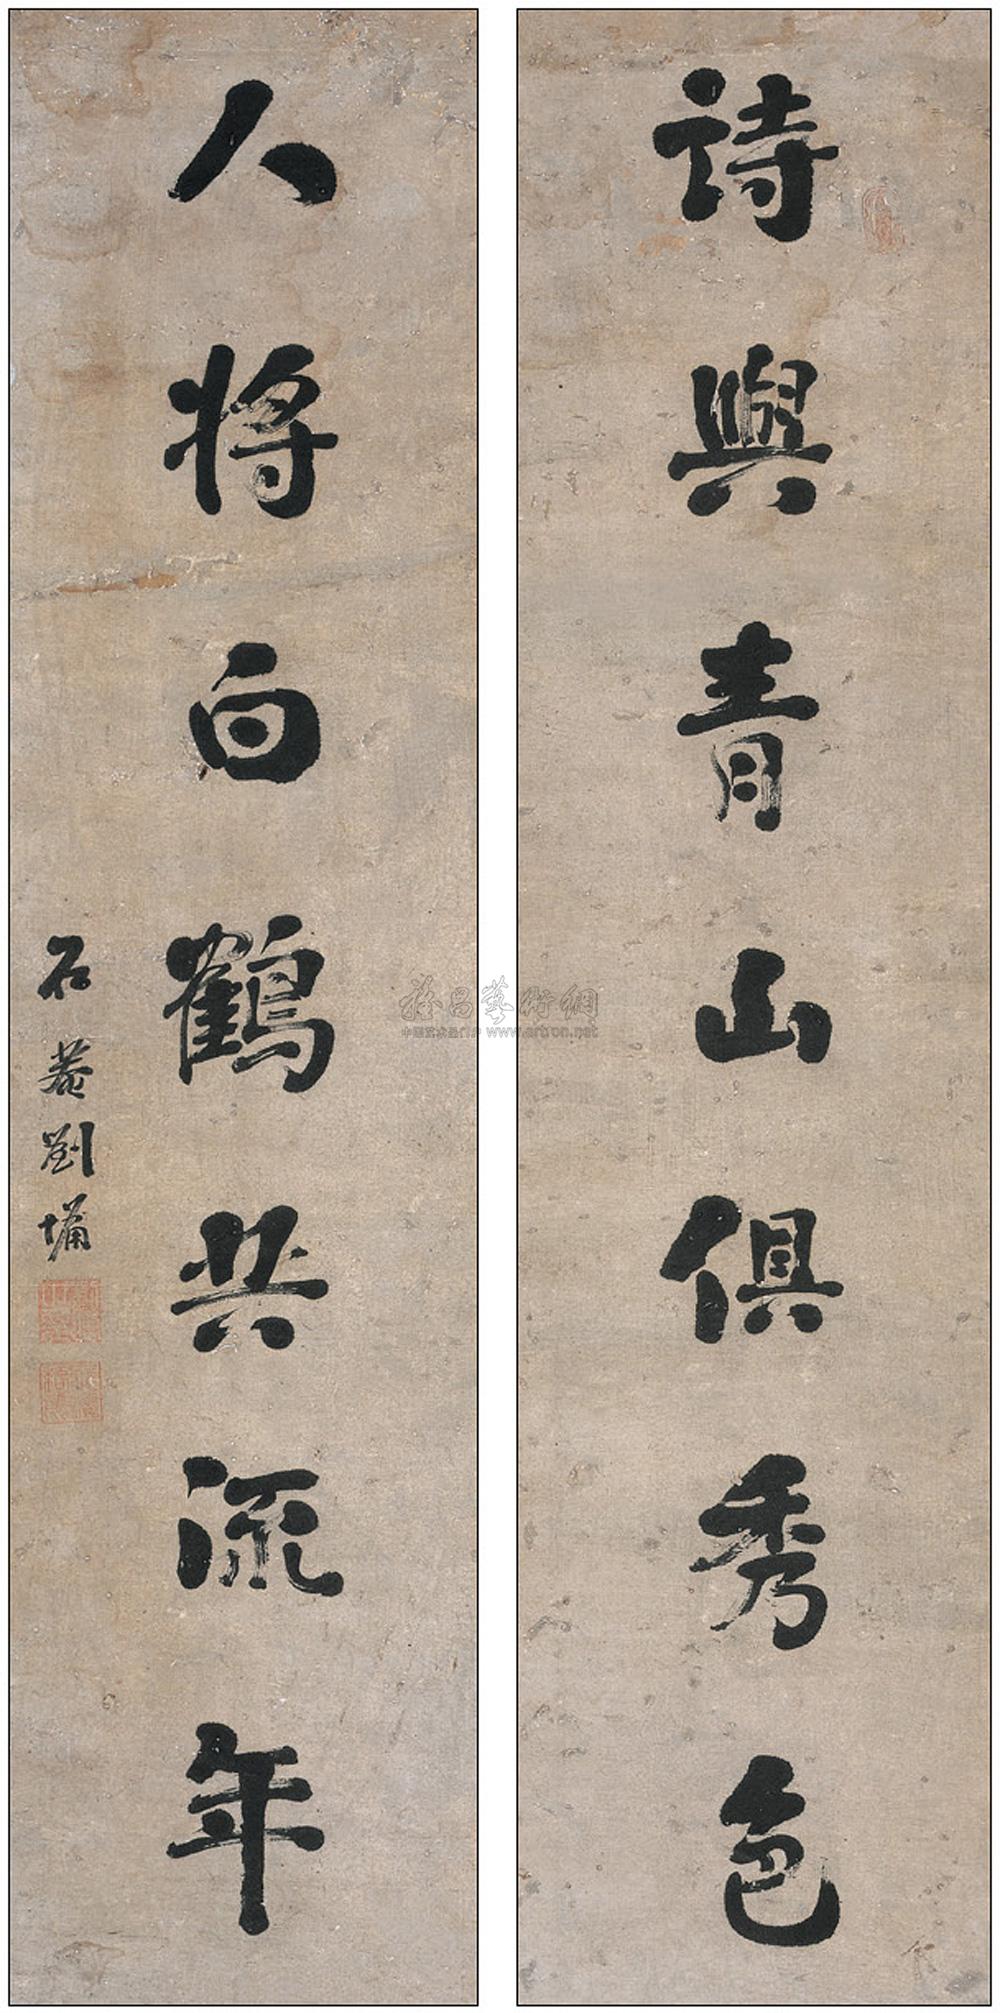 詩與青山俱秀色
人將白鶴共流年
石菴劉墉
雅昌藝術網
中国艺术品门户 www.artron.net